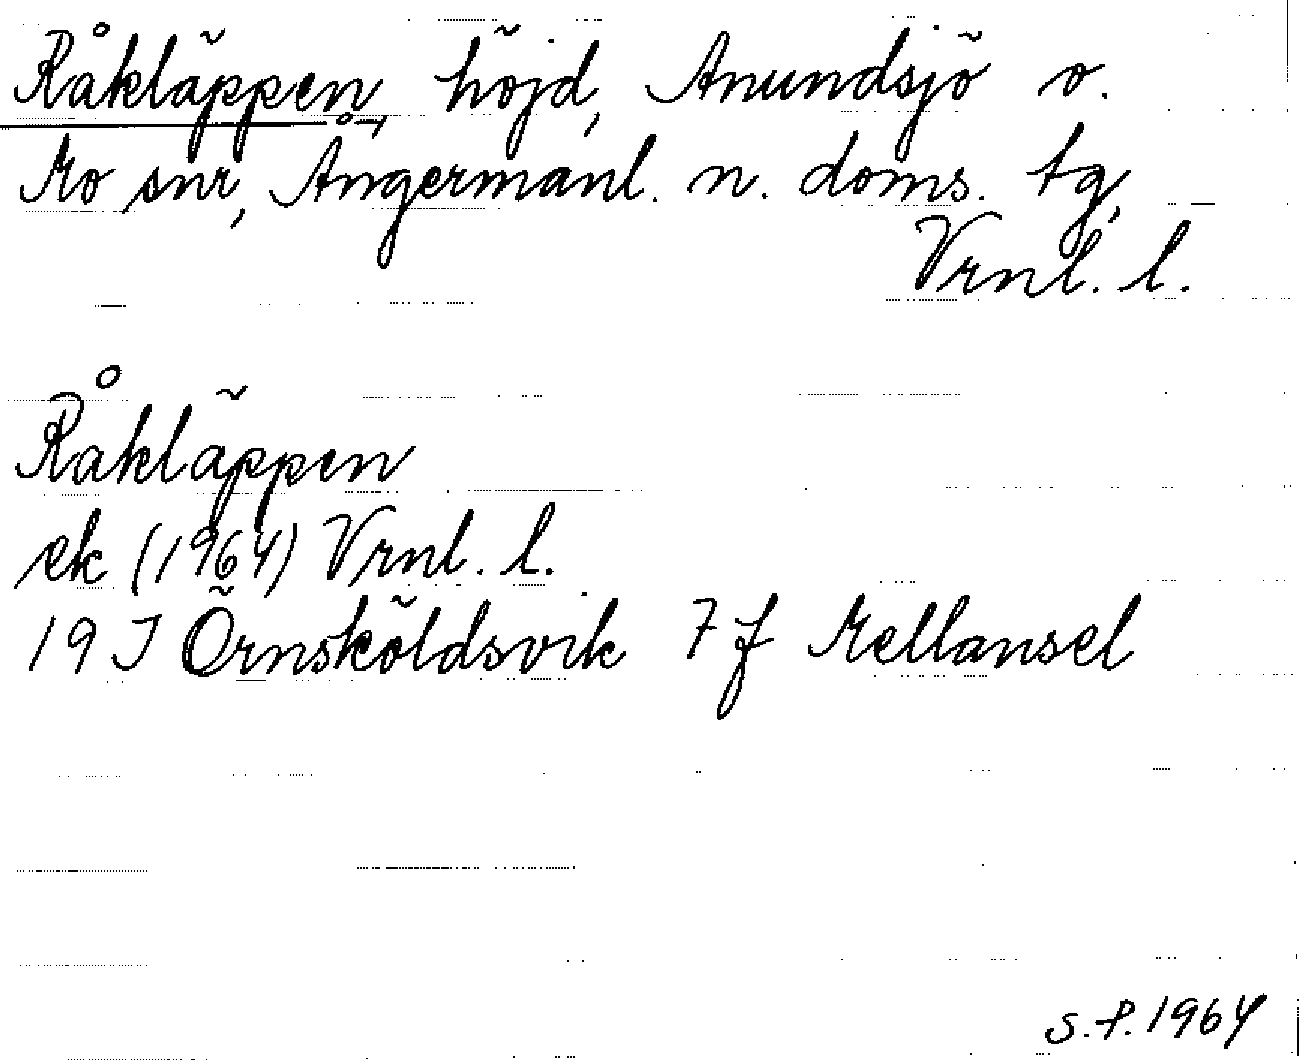 Råkläppen, höjd, Anundsjö o.
Mo snr, Ångermanl. n. doms. tg,
Vrnl. l.
Råkläppen
ek (1964) Vrnl. l.
19 J Örnsköldsvik 7 f Mellansel
S.P. 1964